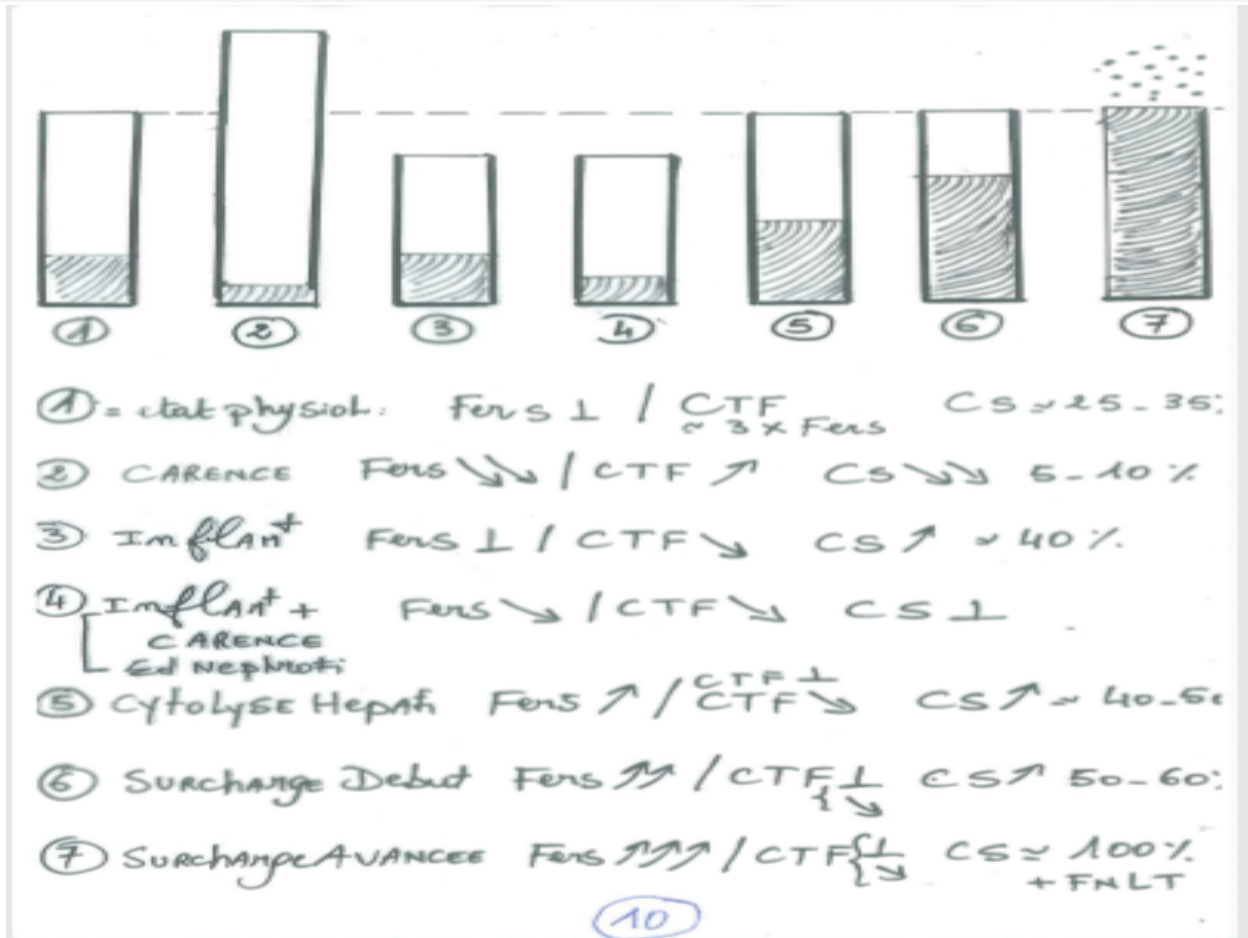 ① ② ③ ④ ⑤ ⑥ ⑦
① = etat physiol. Fers ⊥ / CTF ~ 3 x Fers CS ≃ 25 - 35
② CARENCE Fers ↘↘ / CTF ↗ CS ↘↘ 5 - 10 %
③ Inflam+ Fers ⊥ / CTF ↘ CS ↗ ≃ 40 %.
④ Inflam+ + Fers ↘ / CTF ↘ CS ⊥
CARENCE
Sd Nephroti
CTF ⊥
⑤ Cytolyse Hepati Fers ↗ / CTF ↘ CS ↗ ~ 40 - 50
⑥ Surcharge Debut Fers ↗↗ / CTF { ⊥ ↘ CS ↗ 50 - 60
⑦ Surcharge AVANCEE Fers ↗↗↗ / CTF { ⊥ ↘ CS ≃ 100 %
+ FNLT
10